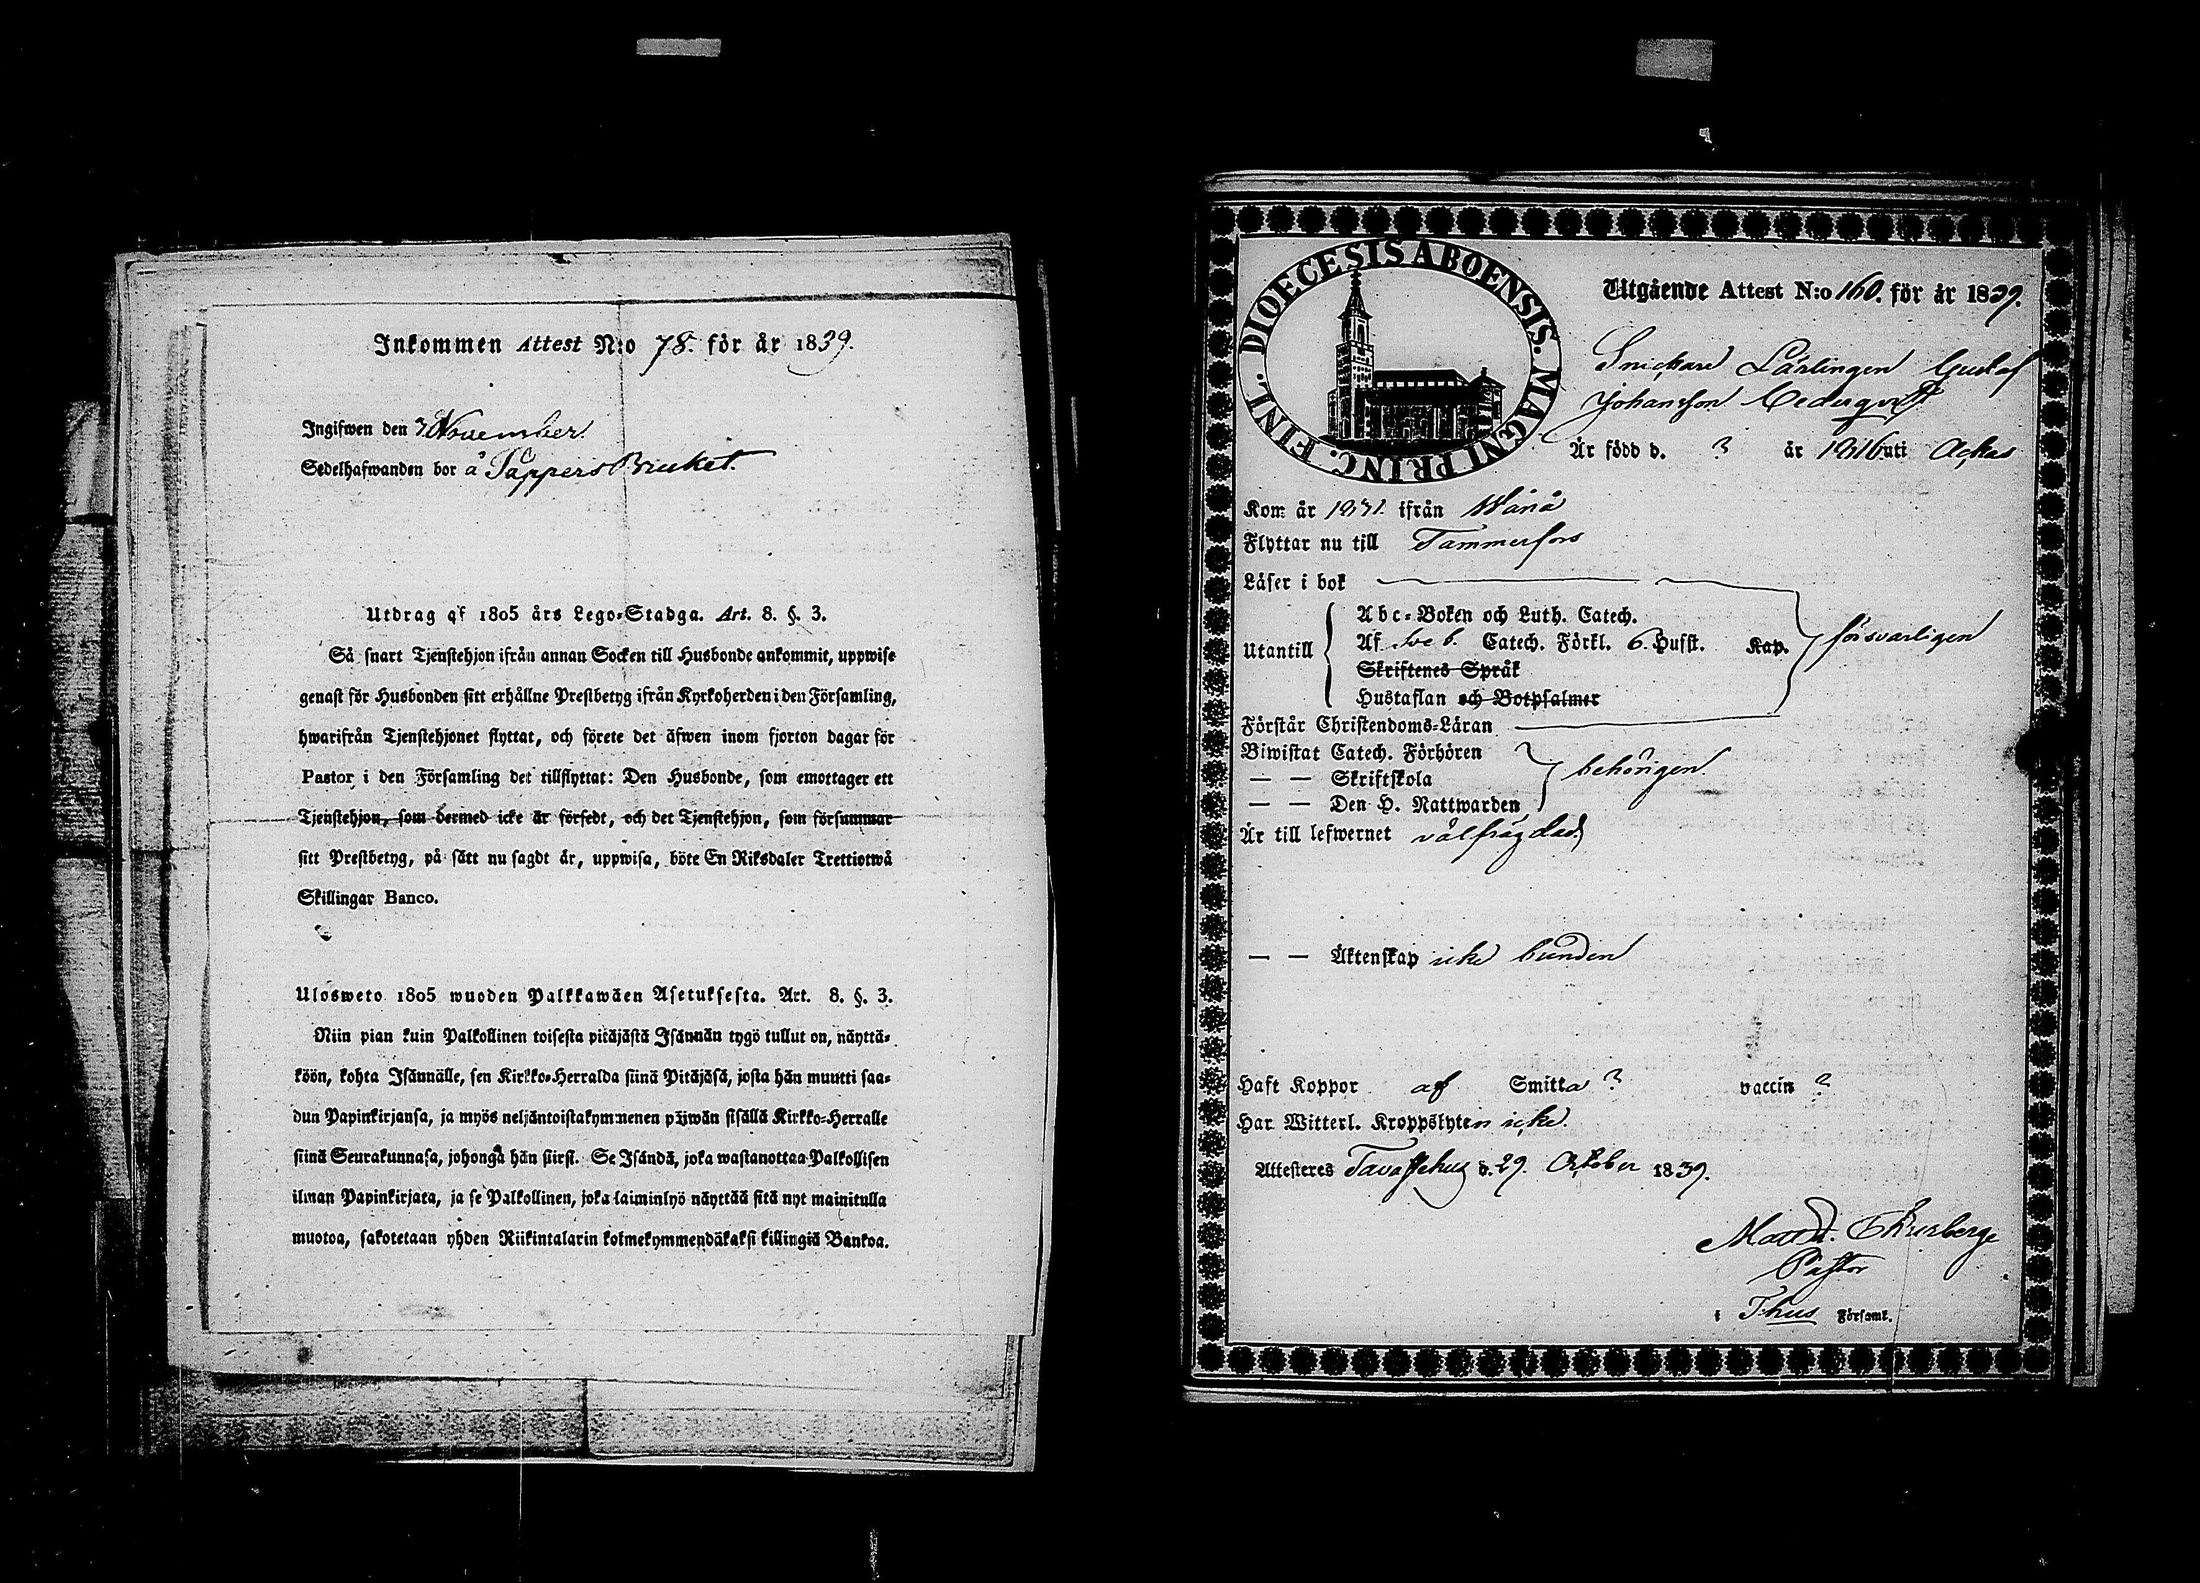 Inkommen Attest N:o 78. för år 1839.
Ingifwen den 3 November.
Sedelhafwanden bor å Täppers Bruket.
Utdrag af 1805 års Lego-Stadga. Art. 8. §. 3.
Så snart Tjenstehjon ifrån annan Socken till Husbonde ankommit, uppwise
genast för Husbonden sitt erhållne Prestbetyg ifrån Kyrkoherden i den Församling,
hwarifrån Tjenstehjonet flyttat, och förete det äfwen inom fjorton dagar för
Pastor i den Församling det tillflyttat: Den Husbonde, som emottager ett
Tjenstehjon, som dermed icke är försedt, och det Tjenstehjon, som försummar
sitt Prestbetyg, på sätt nu sagdt är, uppwisa, böte En Riksdaler Trettiotwå
Skillingar Banco.
Ulosweto 1805 wuoden Palkkawäen Asetuksesta. Art. 8. §. 3.
Niin pian kuin Palkollinen toisesta pitäjästä Isännän tygö tullut on, näyttä-
köön, kohta Isännälle, sen Kirkko-Herralda siinä Pitäjäsä, josta hän muutti saa-
dun Papinkirjansa, ja myös neljäntoistakymmenen päiwän sisällä Kirkko-Herralle
siinä Seurakunnasa, johonga hän siirsi. Se Isändä, joka wastanottaa Palkollisen
ilman Papinkirjata, ja se Palkollinen, joka laiminlyö näyttää sitä nyt mainitulla
muotoa, sakotetaan yhden Riikintalarin kolmekymmendäkaksi killingiä Bankoa.
DIOECESIS ABOENSIS. MAGNI PRINC. FINL.
Utgående Attest N:o 160. för år 1839.
Snickare Lärlingen Gustaf
Johansson Cederqvist
Är född d. ? år 1816 uti Ackas
Kom år 1831. ifrån Wånå
Flyttar nu till Tammerfors
Läser i bok
Abc-Boken och Luth. Catech.
Utantill Af Sveb. Catech. Förkl. 6. Husst. Kap. försvarligen
Skriftenes Språk
Hustaflan och Botpsalmer
Förstår Christendoms-Läran
Biwistat Catech. Förhören
— — Skriftskola behörigen.
— — Den H. Nattwarden
Är till lefwernet välfrägdad
— — Äktenskap icke bunden
Haft Koppor af Smitta ? vaccin ?
Har Witterl. Kroppslyten icke.
Attesteres Tavastehus d. 29. October 1839.
Matth. Thurberge
Pastor
i Thus Församl.